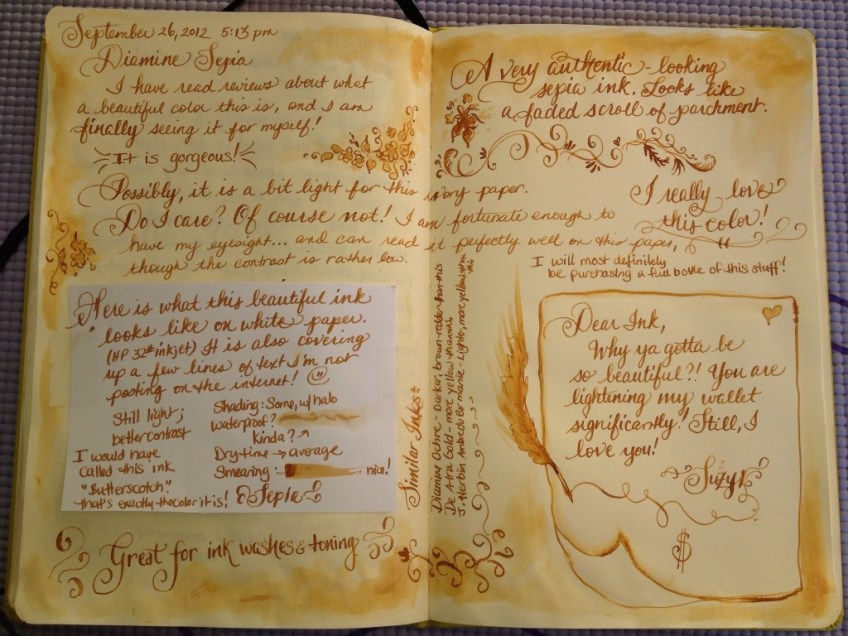 September 26, 2012 5:13 pm
Diamine Sepia
I have read reviews about what
a beautiful color this is, and I am
finally seeing it for myself!
It is gorgeous!
Possibly, it is a bit light for this ivory paper.
Do I care? Of course not! I am fortunate enough to
have my eyesight... and can read it perfectly well on this paper,
though the contrast is rather low.
Here is what this beautiful ink
looks like on white paper.
(HP 32# inkjet) It is also covering
up a few lines of text I'm not
posting on the internet!
Still light;
better contrast
I would have
called this ink
"Butterscotch"
that's exactly the color it is!
Shading: Some, w/ halo
Waterproof?
Kinda?
Dry time → average
Smearing: nice!
Sepia
Great for ink washes & toning
A very authentic-looking
sepia ink. Looks like
a faded scroll of parchment.
I really love
this color!
I will most definitely
be purchasing a full bottle of this stuff!
Similar Inks:
Diamine Ochre - Darker, brown-redder than this
De Atra Gold - more yellow than this
J. Herbin Ambre de Birmanie - Lighter, more yellow
Dear Ink,
Why ya gotta be
so beautiful?! You are
lightening my wallet
significantly! Still, I
love you!
Suzy
$